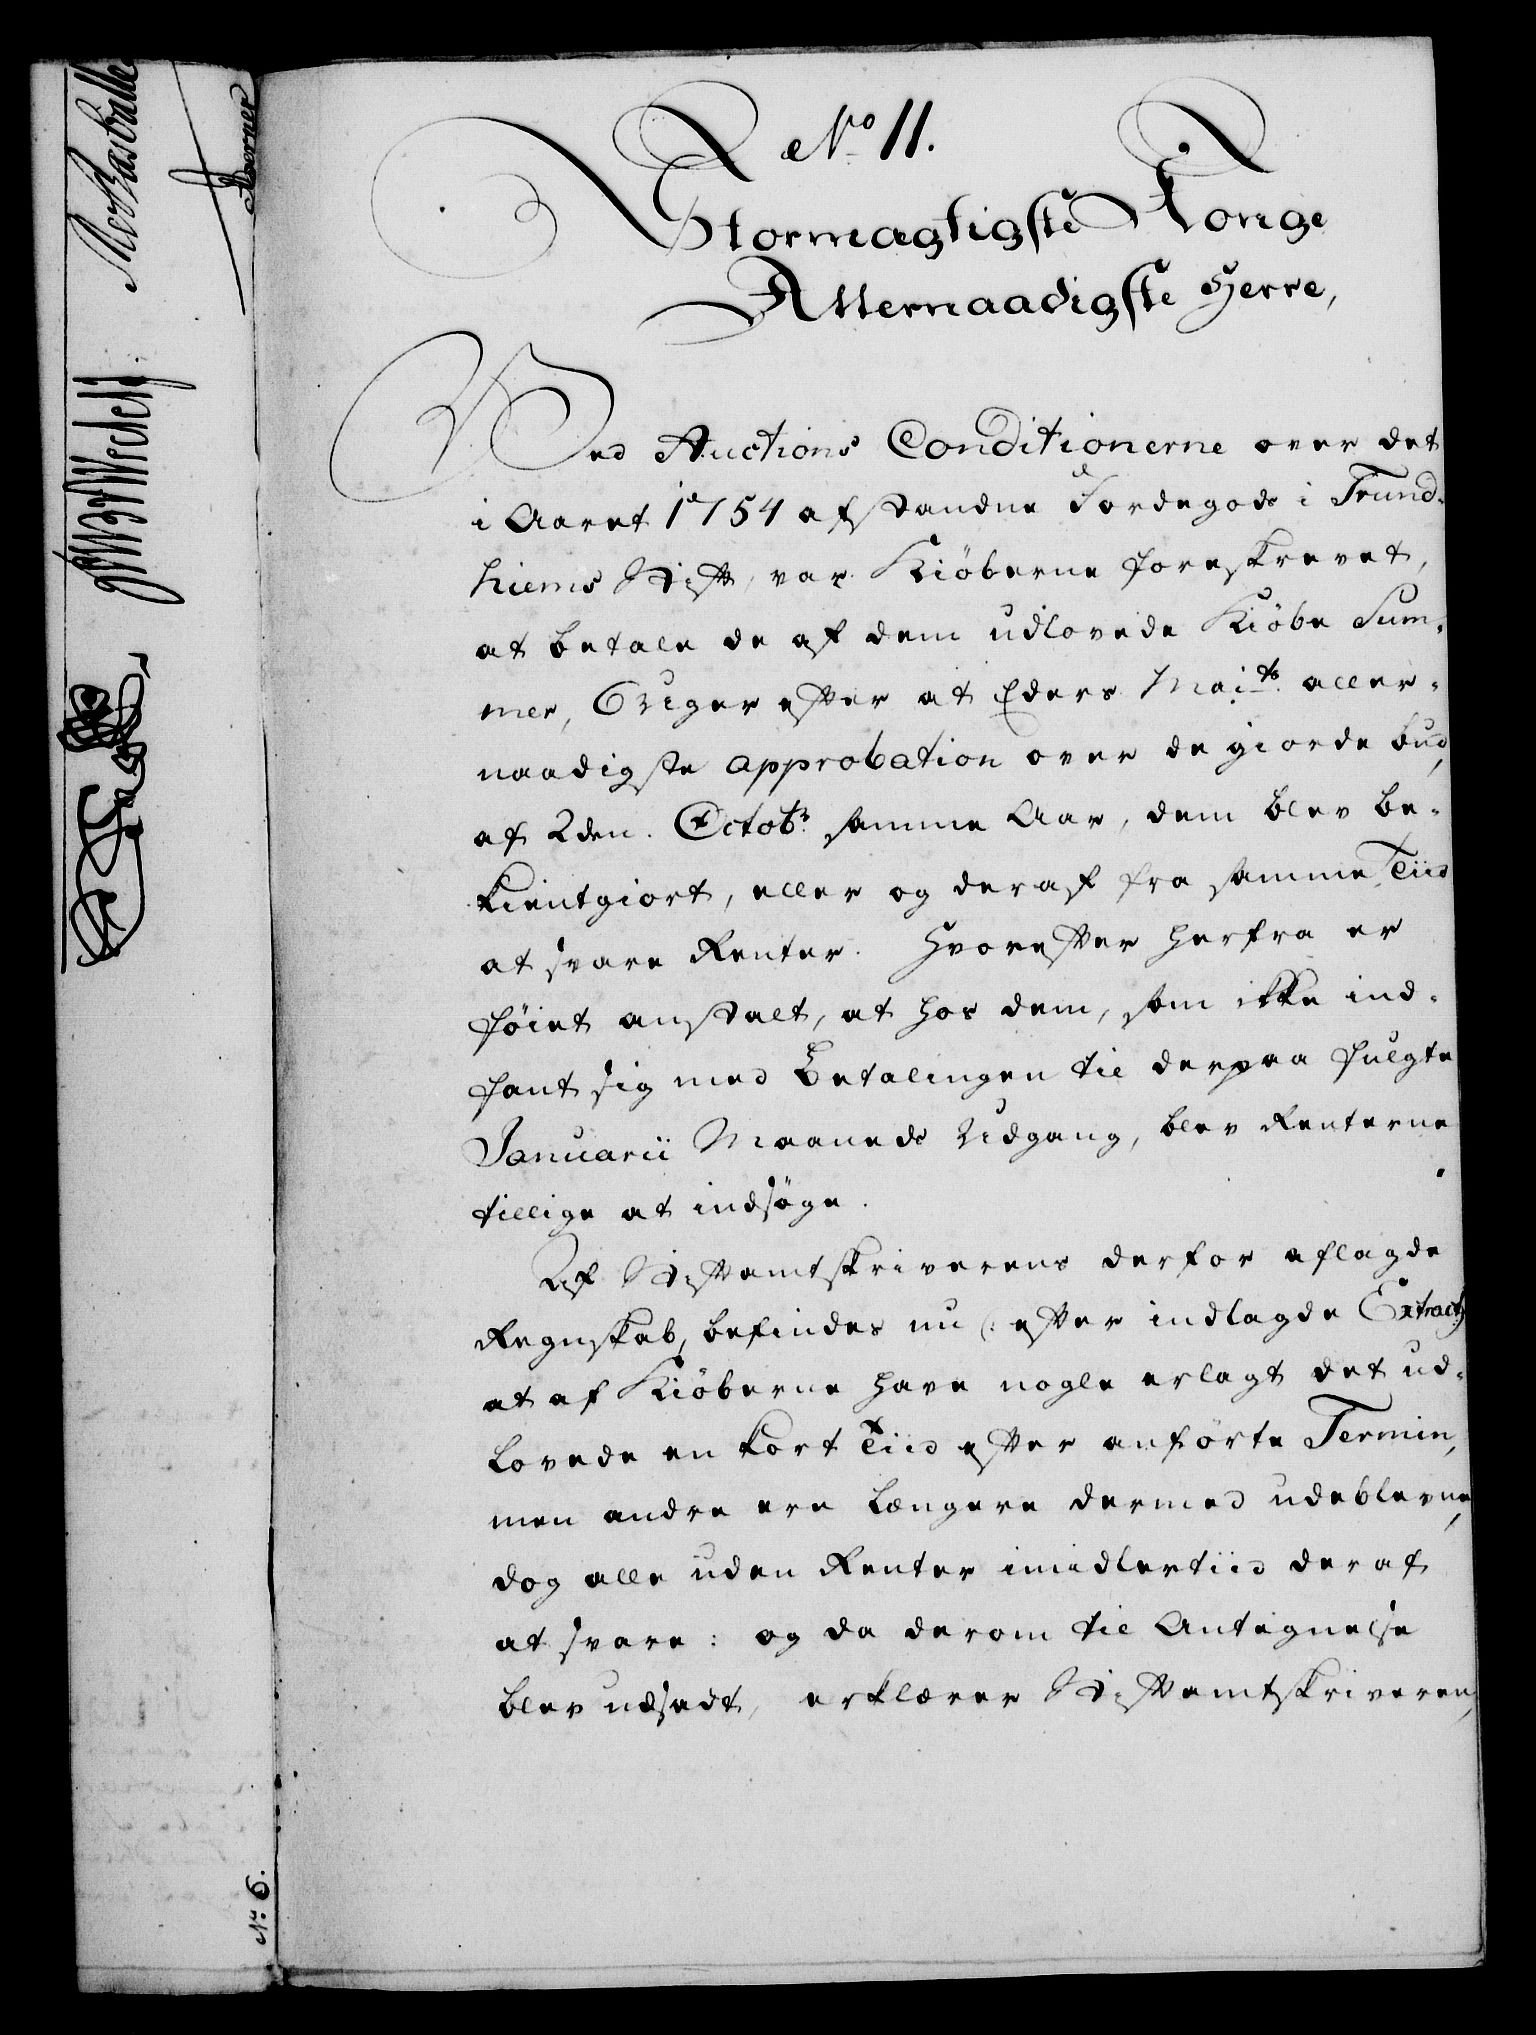 No 11.
Stormagtigste Konge
Allernaadigste Herre,
Ved Auctions Conditionerne over det
i Aaret 1754 afstandne Jordegods i Trund-
hiems Stift, var Kiöberne foreskrevet,
at betale de af dem udlovede Kiöbe Sum-
mer, 6 Uger efter at Eders Maits. aller-
naadigste approbation over de giorde bud,
af 2den. Octobr. samme Aar, dem blev be-
kientgiort, eller og deraf fra samme Tiid
at svare Renter. Hvorefter herfra er
föiet anstalt, at hos dem, som ikke ind-
fant sig med Betalingen til derpaa fulgte
Januarii Maaneds Udgang, blev Renterne
tillige at indsöge.
Af Stiftamtskriverens derfor aflagde
Regnskab, befindes nu /: efter indlagde Extract :/
at af Kiöberne have nogle erlagt det ud-
lovede en kort Tiid efter anförte Termin,
men andre ere længere dermed udeblevne,
dog alle uden Renter imidlertiid deraf
at svare: og da derom til Antegnelse
blev udsadt, erklærer Stiftamtskriveren,
No 6.